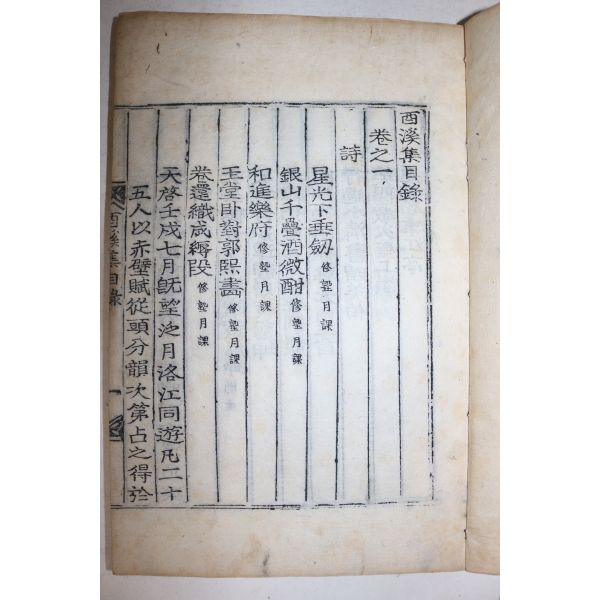 酉溪集目錄
卷之一
詩
星光下垂釰 修墍月課
銀山千疊酒微酣 修墍月課
和進樂府 修墍月課
玉堂卧對郭熙畵 修墍月課
卷還織成縟段 修墍月課
天啓壬戌七月旣望泛月洛江同遊凡二十
五人以赤壁賦從頭分韻次第占之得於
酉溪集目錄 一